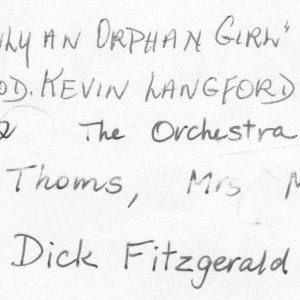 NLY AN ORPHAN GIRL"
OD. KEVIN LANGFORD
2 The Orchestra
Thoms, Mrs M
Dick Fitzgerald